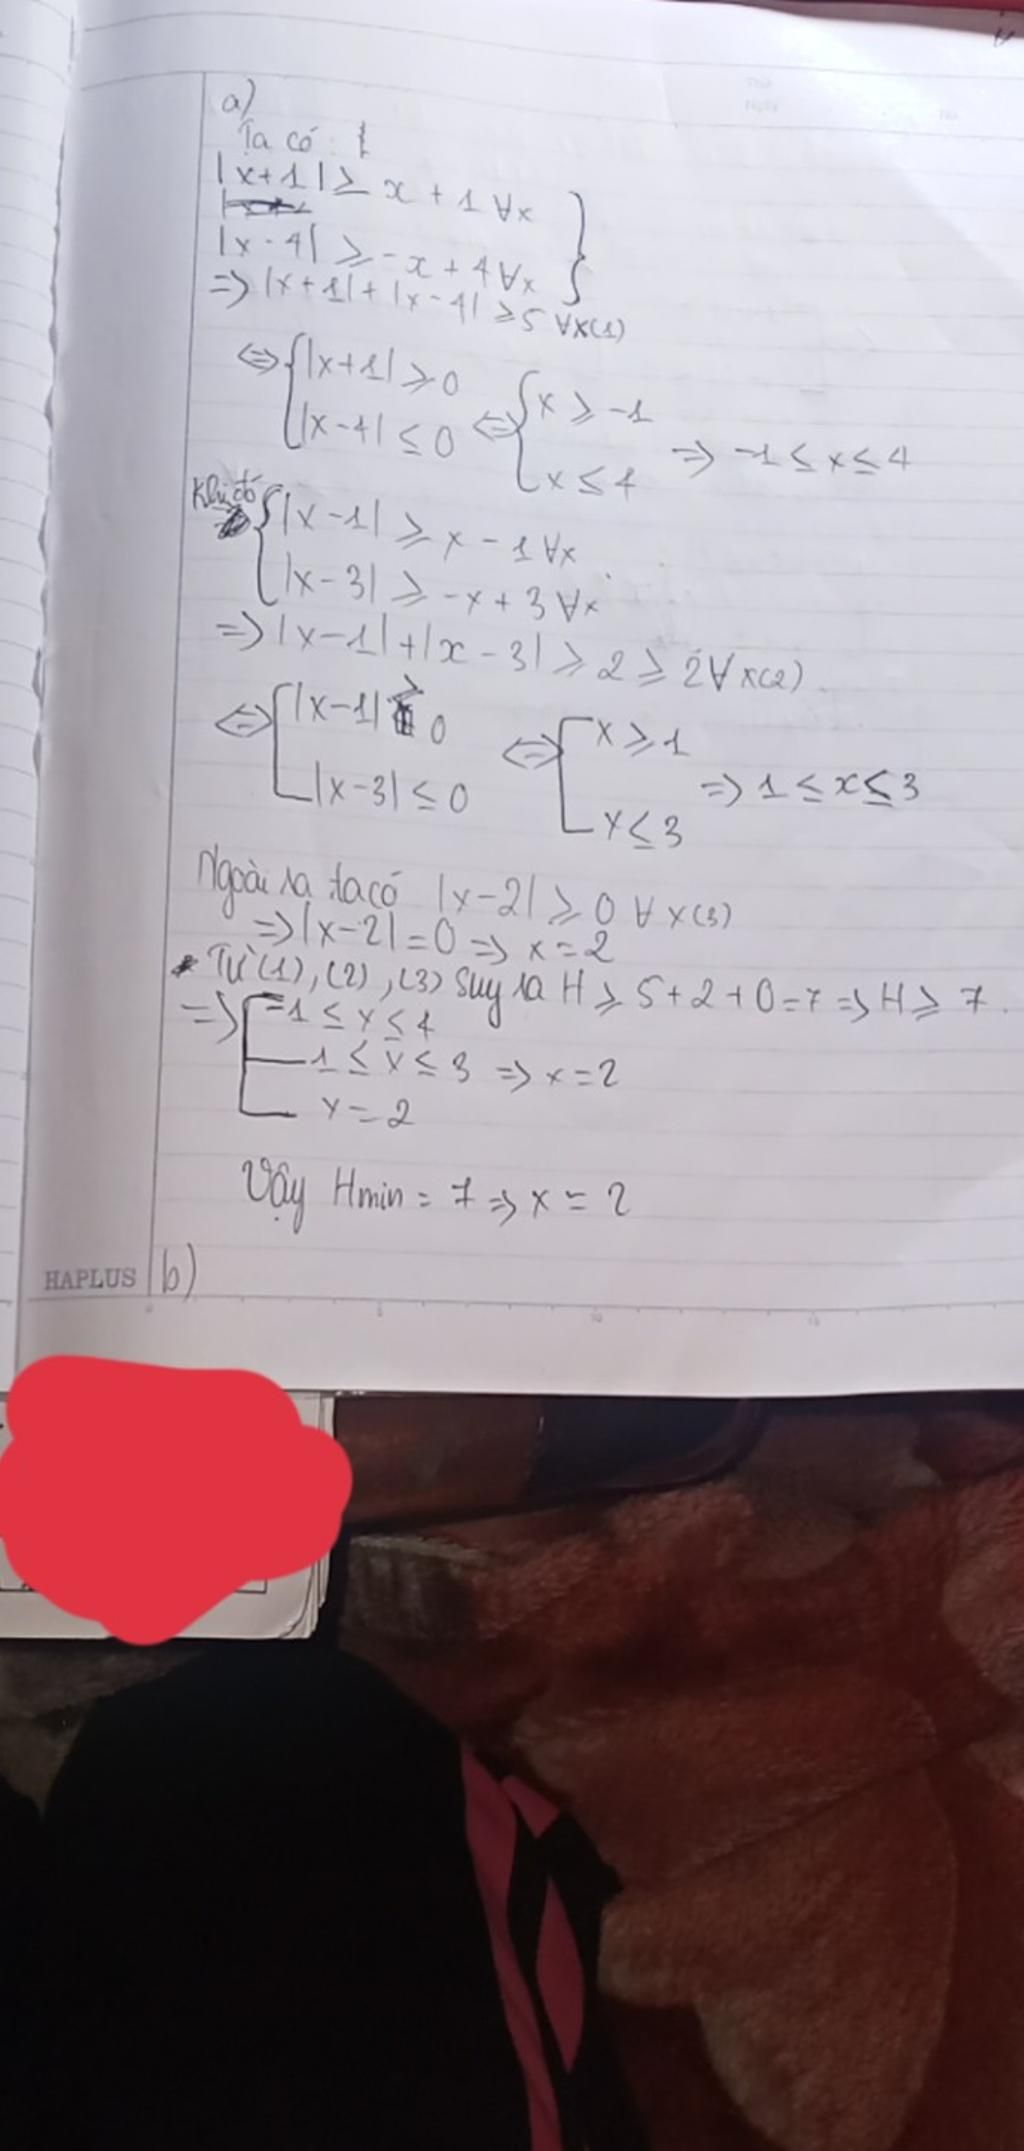 a)
Ta có : {
|x+1| ≥ x + 1 ∀x
|x-4| ≥ -x + 4 ∀x }
=> |x+1| + |x-4| ≥ 5 ∀x(1)
<=> { |x+1| ≥ 0 <=> { x ≥ -1
|x-4| ≤ 0 x ≤ 4 => -1 ≤ x ≤ 4
Khi đó { |x-1| ≥ x - 1 ∀x
|x-3| ≥ -x + 3 ∀x
=> |x-1| + |x-3| ≥ 2 ≥ 2 ∀x(2)
<=> [ |x-1| ≥ 0 <=> [ x ≥ 1
|x-3| ≤ 0 x ≤ 3 => 1 ≤ x ≤ 3
Ngoài ra ta có |x-2| ≥ 0 ∀x(3)
=> |x-2| = 0 => x = 2
Từ (1), (2), (3) suy ra H ≥ 5+2+0=7 => H ≥ 7
=> [ -1 ≤ x ≤ 4
1 ≤ x ≤ 3 => x = 2
x = 2
Vậy Hmin = 7 => x = 2
HAPLUS b)